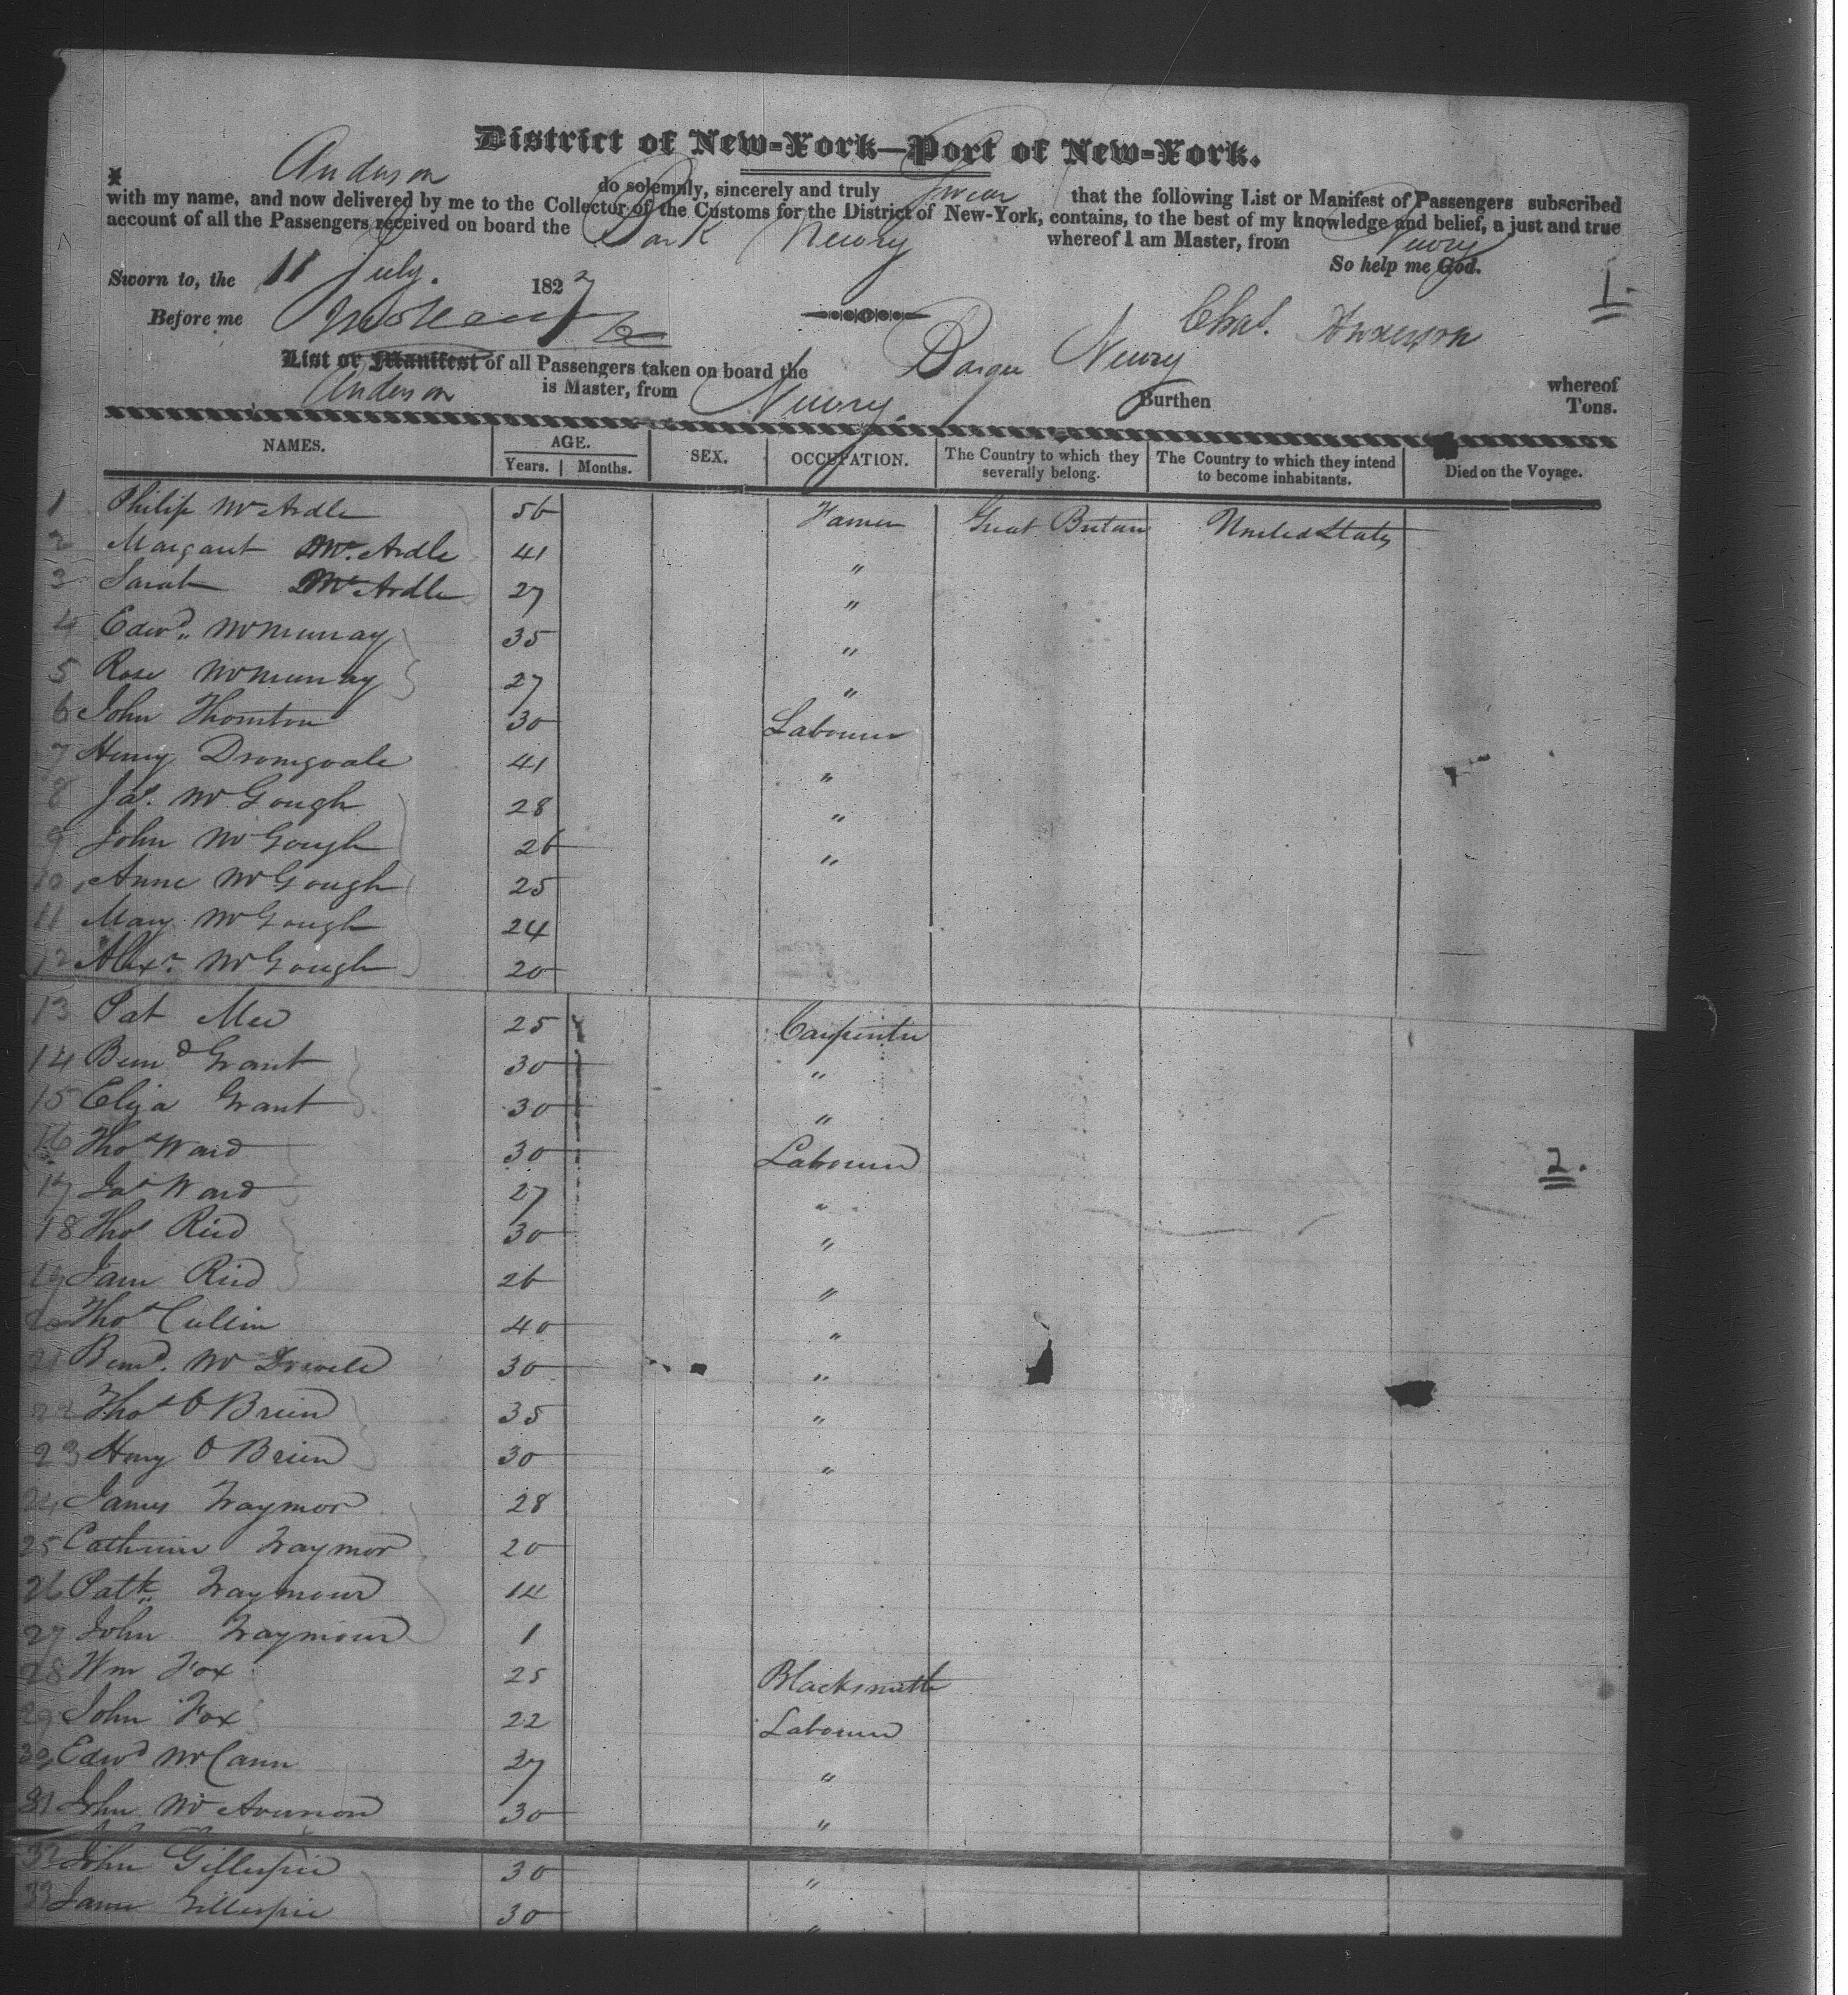 District of New-York—Port of New-York.
I, Anderson do solemnly, sincerely and truly swear that the following List or Manifest of Passengers subscribed
with my name, and now delivered by me to the Collector of the Customs for the District of New-York, contains, to the best of my knowledge and belief, a just and true
account of all the Passengers received on board the Bark Newry whereof I am Master, from Newry
So help me God.
Sworn to, the 11 July. 1827
Before me
Chas. Anderson
1.
List or Manifest of all Passengers taken on board the Barque Newry whereof
Anderson is Master, from Newry. Burthen Tons.
NAMES. AGE. SEX. OCCUPATION. The Country to which they severally belong. The Country to which they intend to become inhabitants. Died on the Voyage.
Years. Months.
1 Philip McArdle 56 Farmer Great Britain United States
2 Margaret McArdle 41 "
3 Sarah McArdle 27 "
4 Edwd. McMurray 35 "
5 Rose McMurray 27 "
6 John Thornton 30 Labourer
7 Henry Dromgoale 41 "
8 Jas. McGough 28 "
9 John McGough 26 "
10 Anne McGough 25
11 Mary McGough 24
12 Alexr. McGough 20
13 Pat Mee 25 Carpenter
14 Bernd Grant 30 "
15 Eliza Grant 30 "
16 Thos Ward 30 Labourer
17 Jas Ward 27 "
2.
18 Thos Reid 30 "
19 Jam Reid 26 "
20 Thos Cullen 40 "
21 Bernd. Mc 30 "
22 Thos O Brien 35 "
23 Henry O Brien 30 "
24 James Traymor 28
25 Catherine Traymor 20
26 Patk Traymour 14
27 John Traymour 1
28 Wm Fox 25 Blacksmith
29 John Fox 22 Labourer
30 Edwd McCann 27 "
31 John Mc 30 "
32 John Gillespie 30 "
33 James Gillespie 30 "